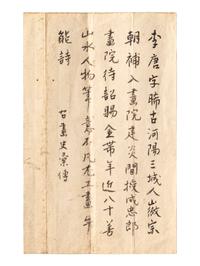 李唐字晞古河陽三城人山徽宗
朝補入畫院建炎間授成忠郎
畫院待詔賜金帶年近八十善
山水人物筆意不凡尤工畫牛
能詩
古畫史彙傳